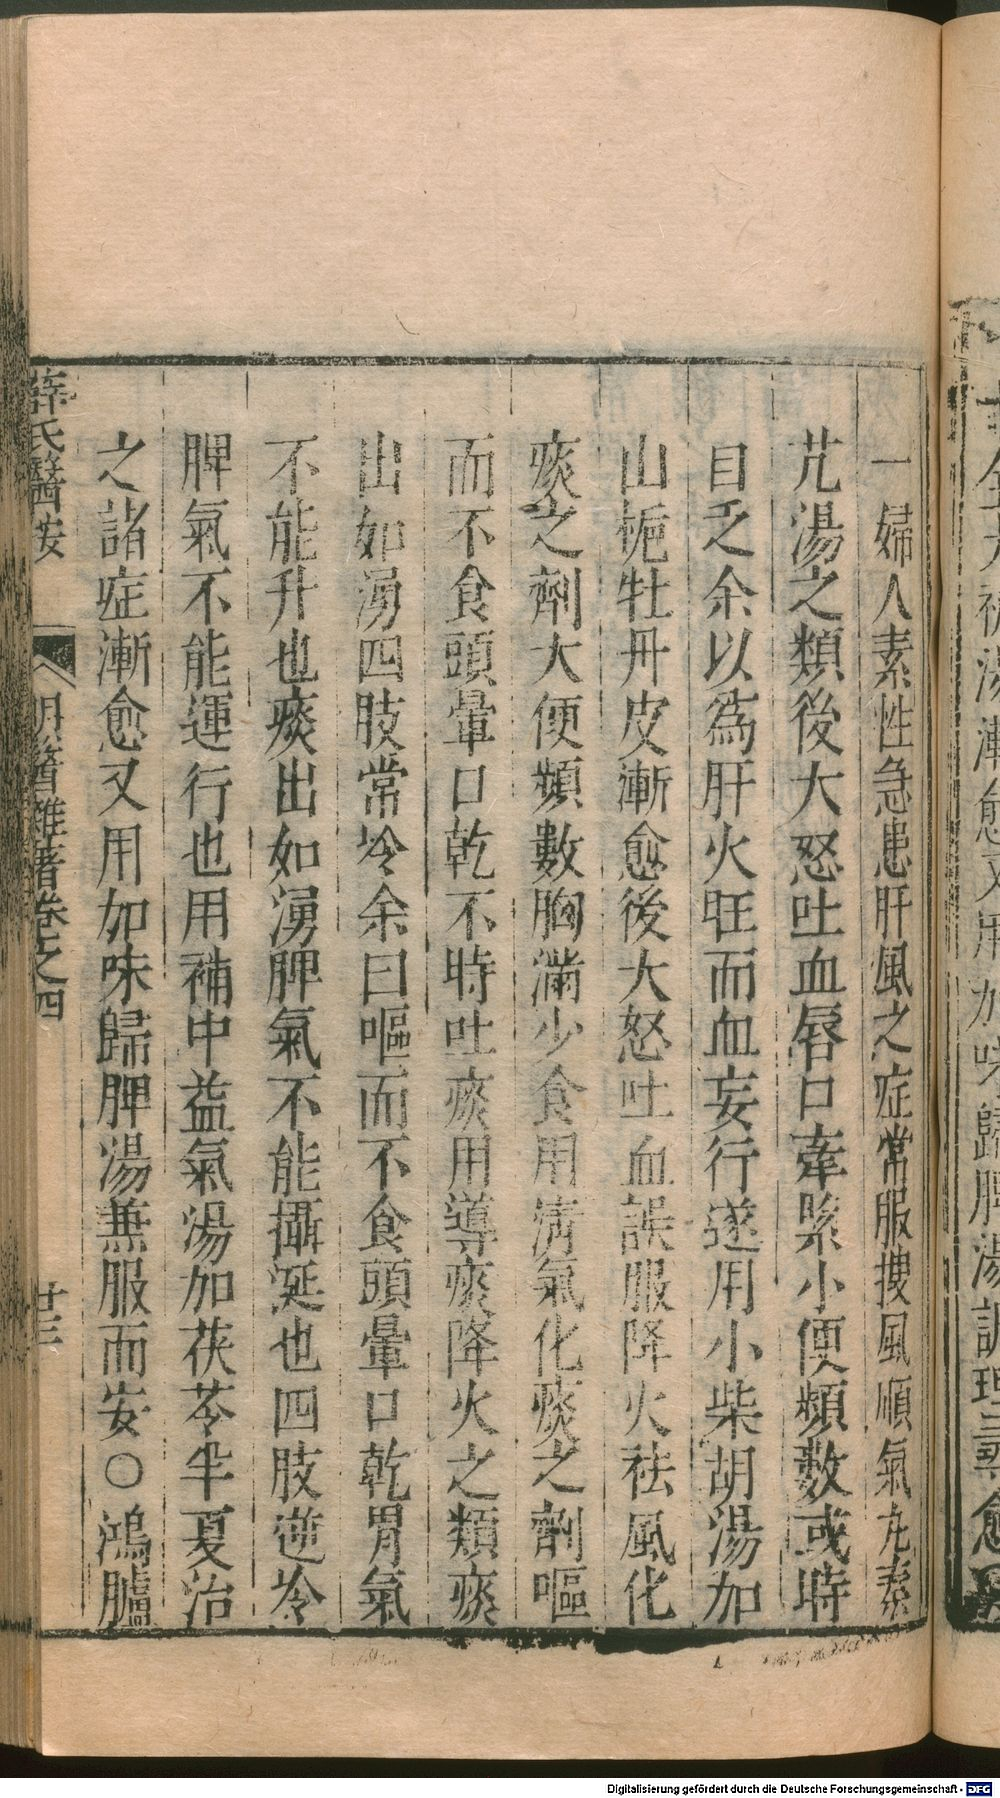 一婦人素性急患肝風之症常服搜風順氣丸秦
艽湯之類後大怒吐血唇口牽緊小便頻數或時
自乏余以為肝火旺而血妄行遂用小柴胡湯加
山梔牡丹皮漸愈後大怒吐血誤服降火祛風化
痰之劑大便頻數胸滿少食用清氣化痰之劑嘔
而不食頭暈口乾不時吐痰用導痰降火之類痰
出如湧四肢常冷余曰嘔而不食頭暈口乾胃氣
不能升也痰出如湧脾氣不能攝涎也四肢逆冷
脾氣不能運行也用補中益氣湯加茯苓半夏治
之諸症漸愈又用加味歸脾湯兼服而安○鴻臚
薛氏醫按 明醫雜著卷之四 廿三
湯漸愈又用加味歸脾湯調理尋愈
Digitalisierung gefördert durch die Deutsche Forschungsgemeinschaft - DFG